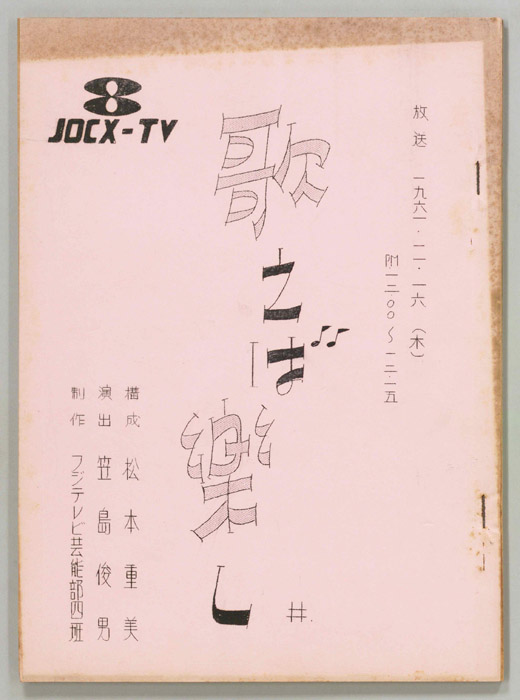 JOCX-TV
放送 一九六一・二・一六(木)
PM 一二・〇〇〜一二・一五
歌えば楽し
#.
構成 松本重美
演出 笠島俊男
制作 フジテレビ芸能部四班